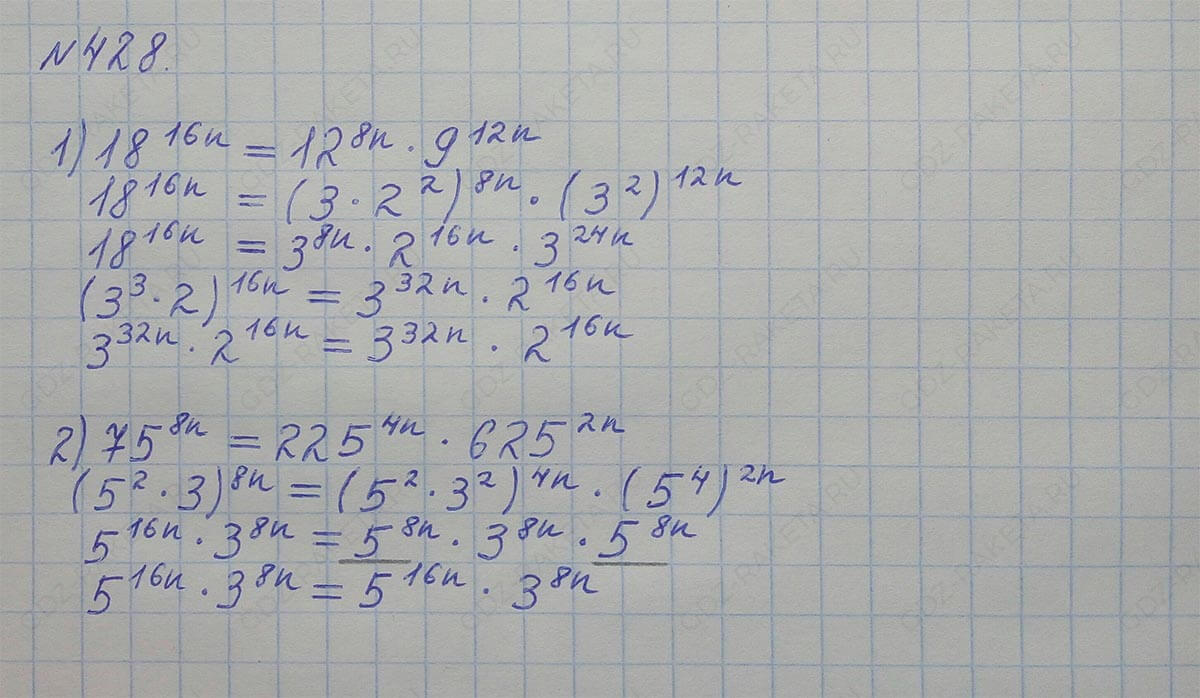 №428.
1) 18^{16n} = 12^{8n} · 9^{12n}
18^{16n} = (3 · 2^2)^{8n} · (3^2)^{12n}
18^{16n} = 3^{8n} · 2^{16n} · 3^{24n}
(3^3 · 2)^{16n} = 3^{32n} · 2^{16n}
3^{32n} · 2^{16n} = 3^{32n} · 2^{16n}
2) 75^{8n} = 225^{4n} · 625^{2n}
(5^2 · 3)^{8n} = (5^2 · 3^2)^{4n} · (5^4)^{2n}
5^{16n} · 3^{8n} = 5^{8n} · 3^{8n} · 5^{8n}
5^{16n} · 3^{8n} = 5^{16n} · 3^{8n}
GDZ-RAKETA.RU